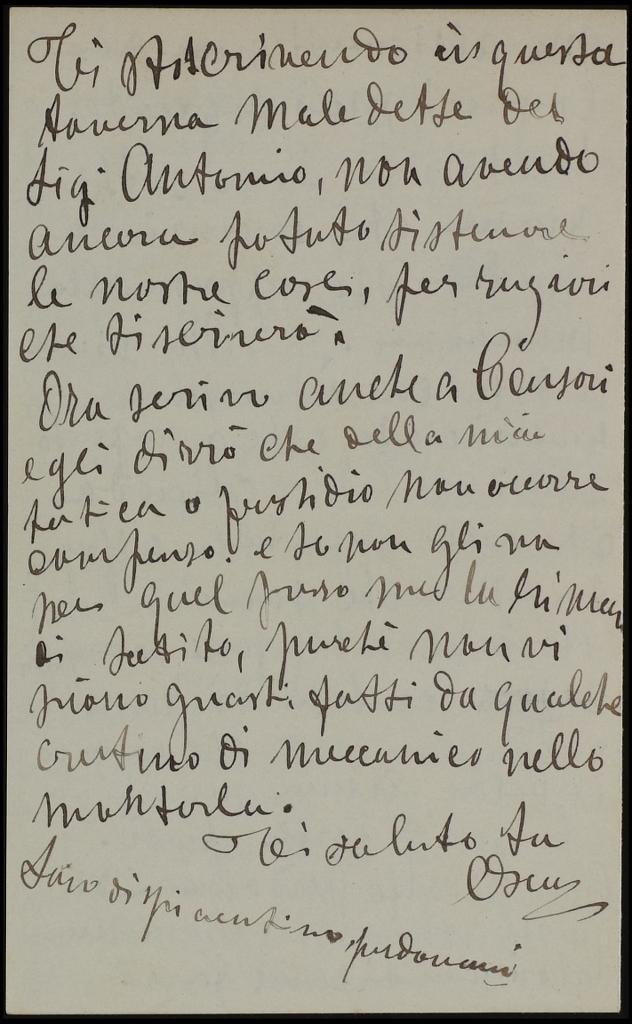 Ti sto scrivendo in questa
taverna maledette del
Sig. Antonio, non avendo
ancora potuto sistemare
le nostre cose, per ragioni
che ti scriverò.
Ora scrivo anche a Censori
e gli dirrò che della mia
fatica o fastidio non occorre
compenso. e se non gli va
per quel prso me la rimandi
di subito, purchè non vi
siano guasti fatti da qualche
cretino di meccanico nello
montarla.
Ti saluto tuo
Oscar
Sono dispiacentimo, perdonami